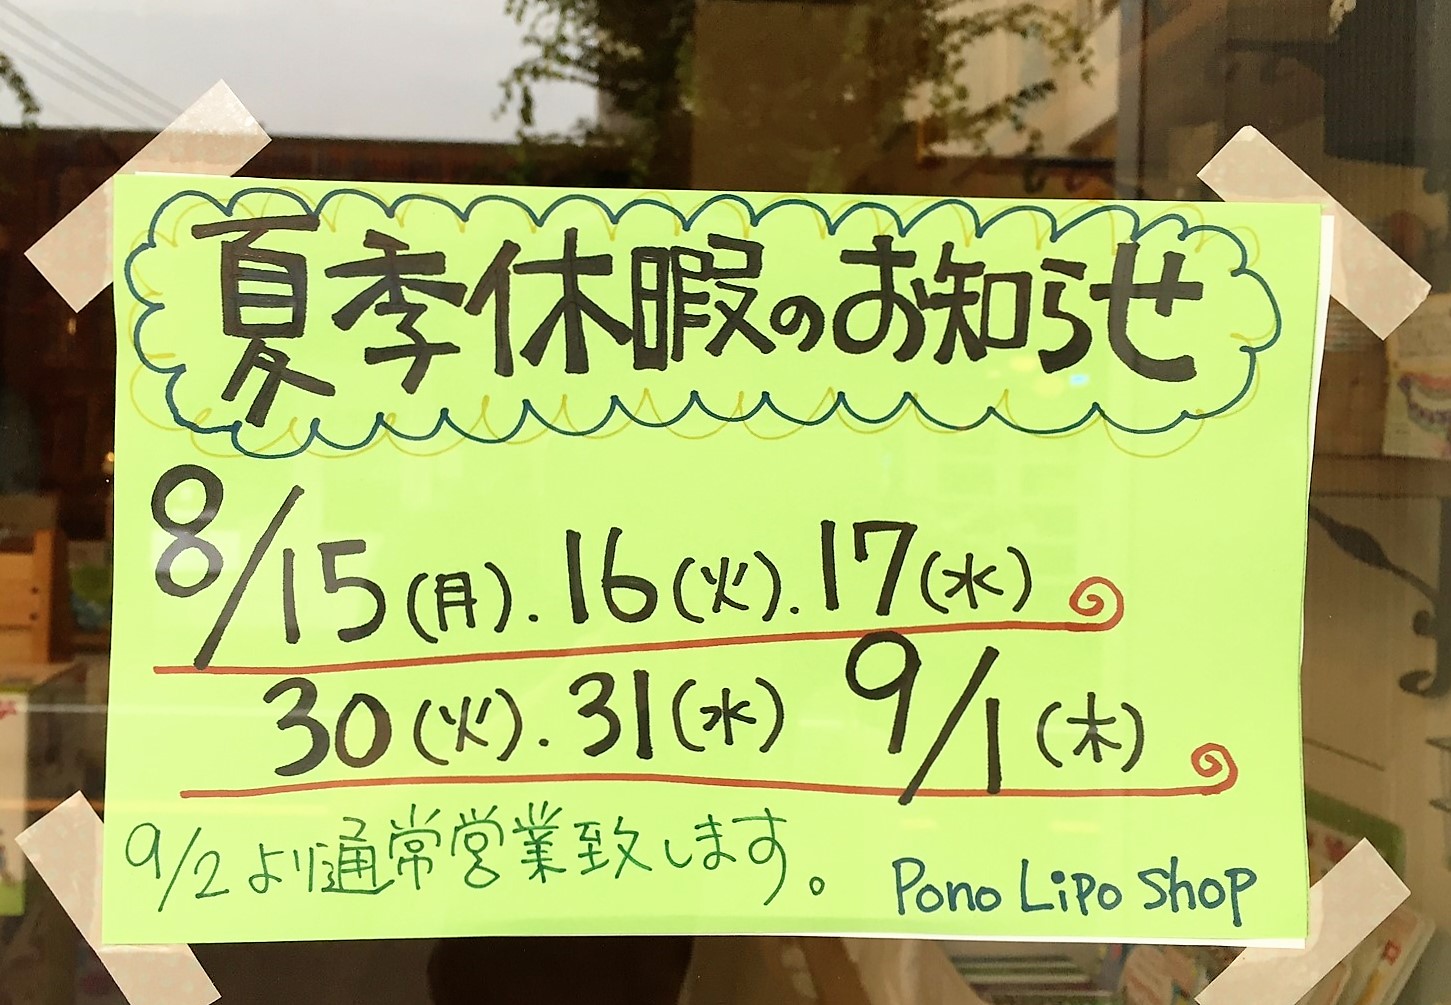 夏季休暇のお知らせ
8/15(月).16(火).17(水)
30(火).31(水) 9/1(木)
9/2より通常営業致します。
Pono Lipo Shop